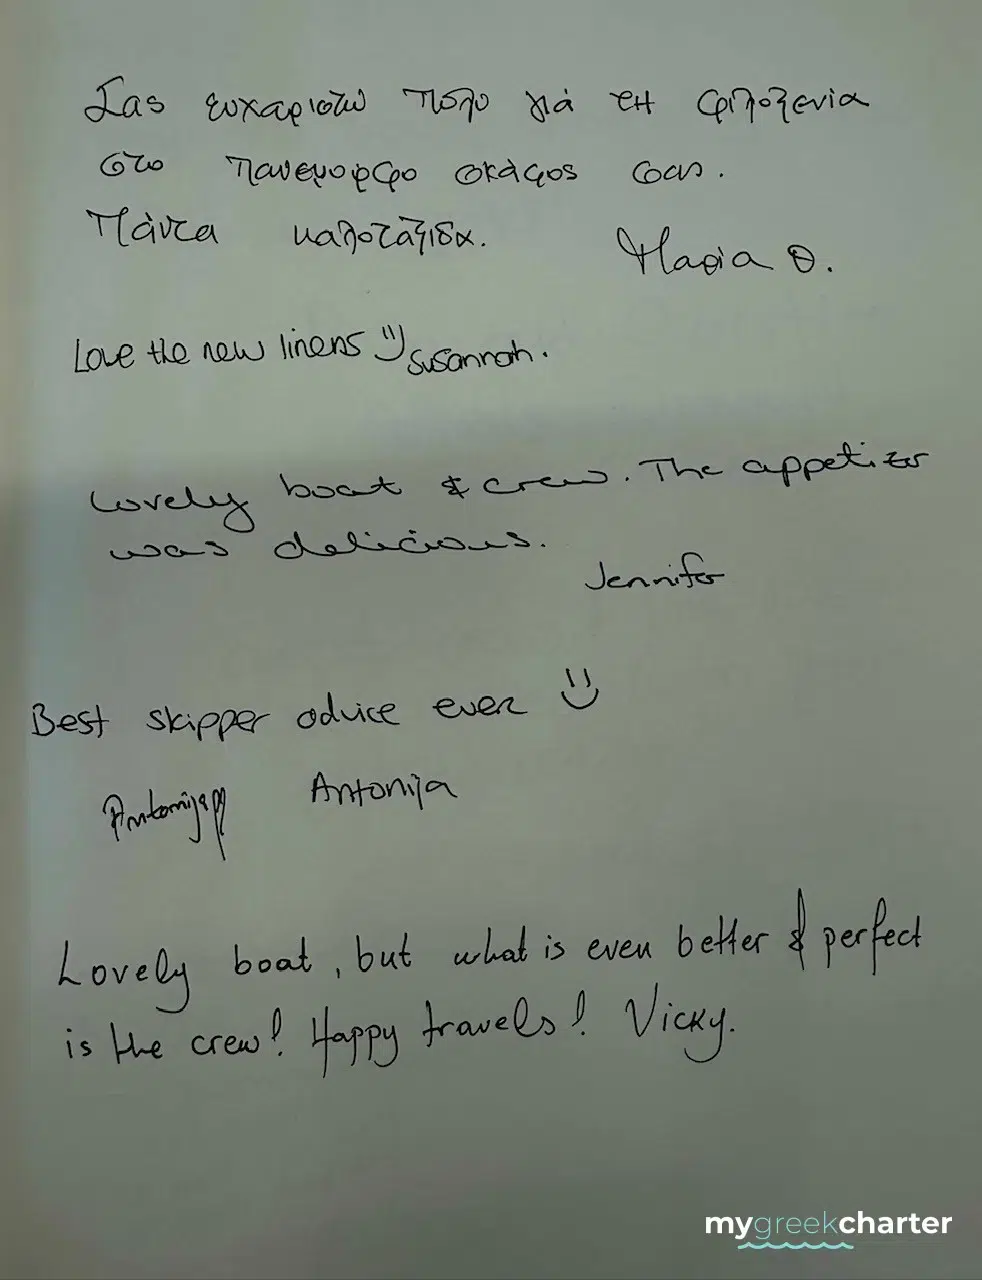 Σας ευχαριστώ πολυ γιά τη φιλοξενία
στο πανεμορφο σκάφος σας.
Πάντα καλοτάξιδα.
Μαρία Θ.
Love the new linens :) Susannah.
Lovely boat & crew. The appetizer
was delicious.
Jennifer
Best skipper advice ever :)
Antonija
Lovely boat, but what is even better & perfect
is the crew! Happy travels! Vicky.
mygreekcharter